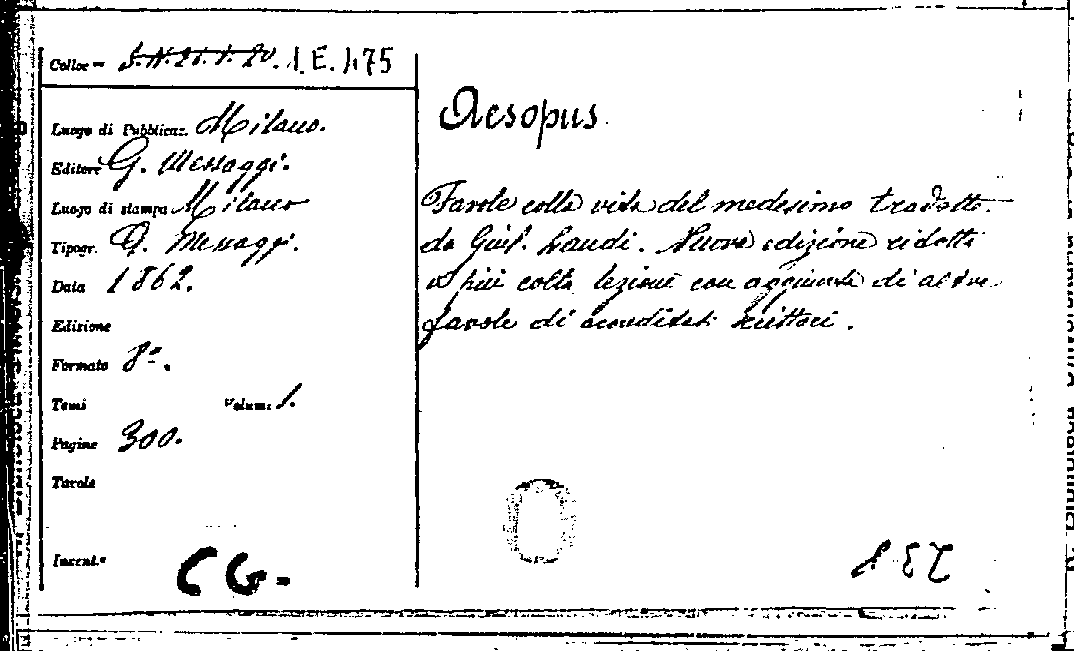 Colloc.ne S.N.21.1.20. 1.E.1.75
Luogo di Pubblicaz. Milano.
Editore G. Messaggi.
Luogo di stampa Milano
Tipogr. G. Messaggi.
Data 1862.
Edizione
Formato 8º.
Tomi Volumi 1.
Pagine 300.
Tavole
Invent.º CG.
Aesopus.
Favole colla vita del medesimo tradotte
da Giul. Landi. Nuova edizione ridotta
a più colta lezione con aggiunta di altre
favole di accreditati scrittori.